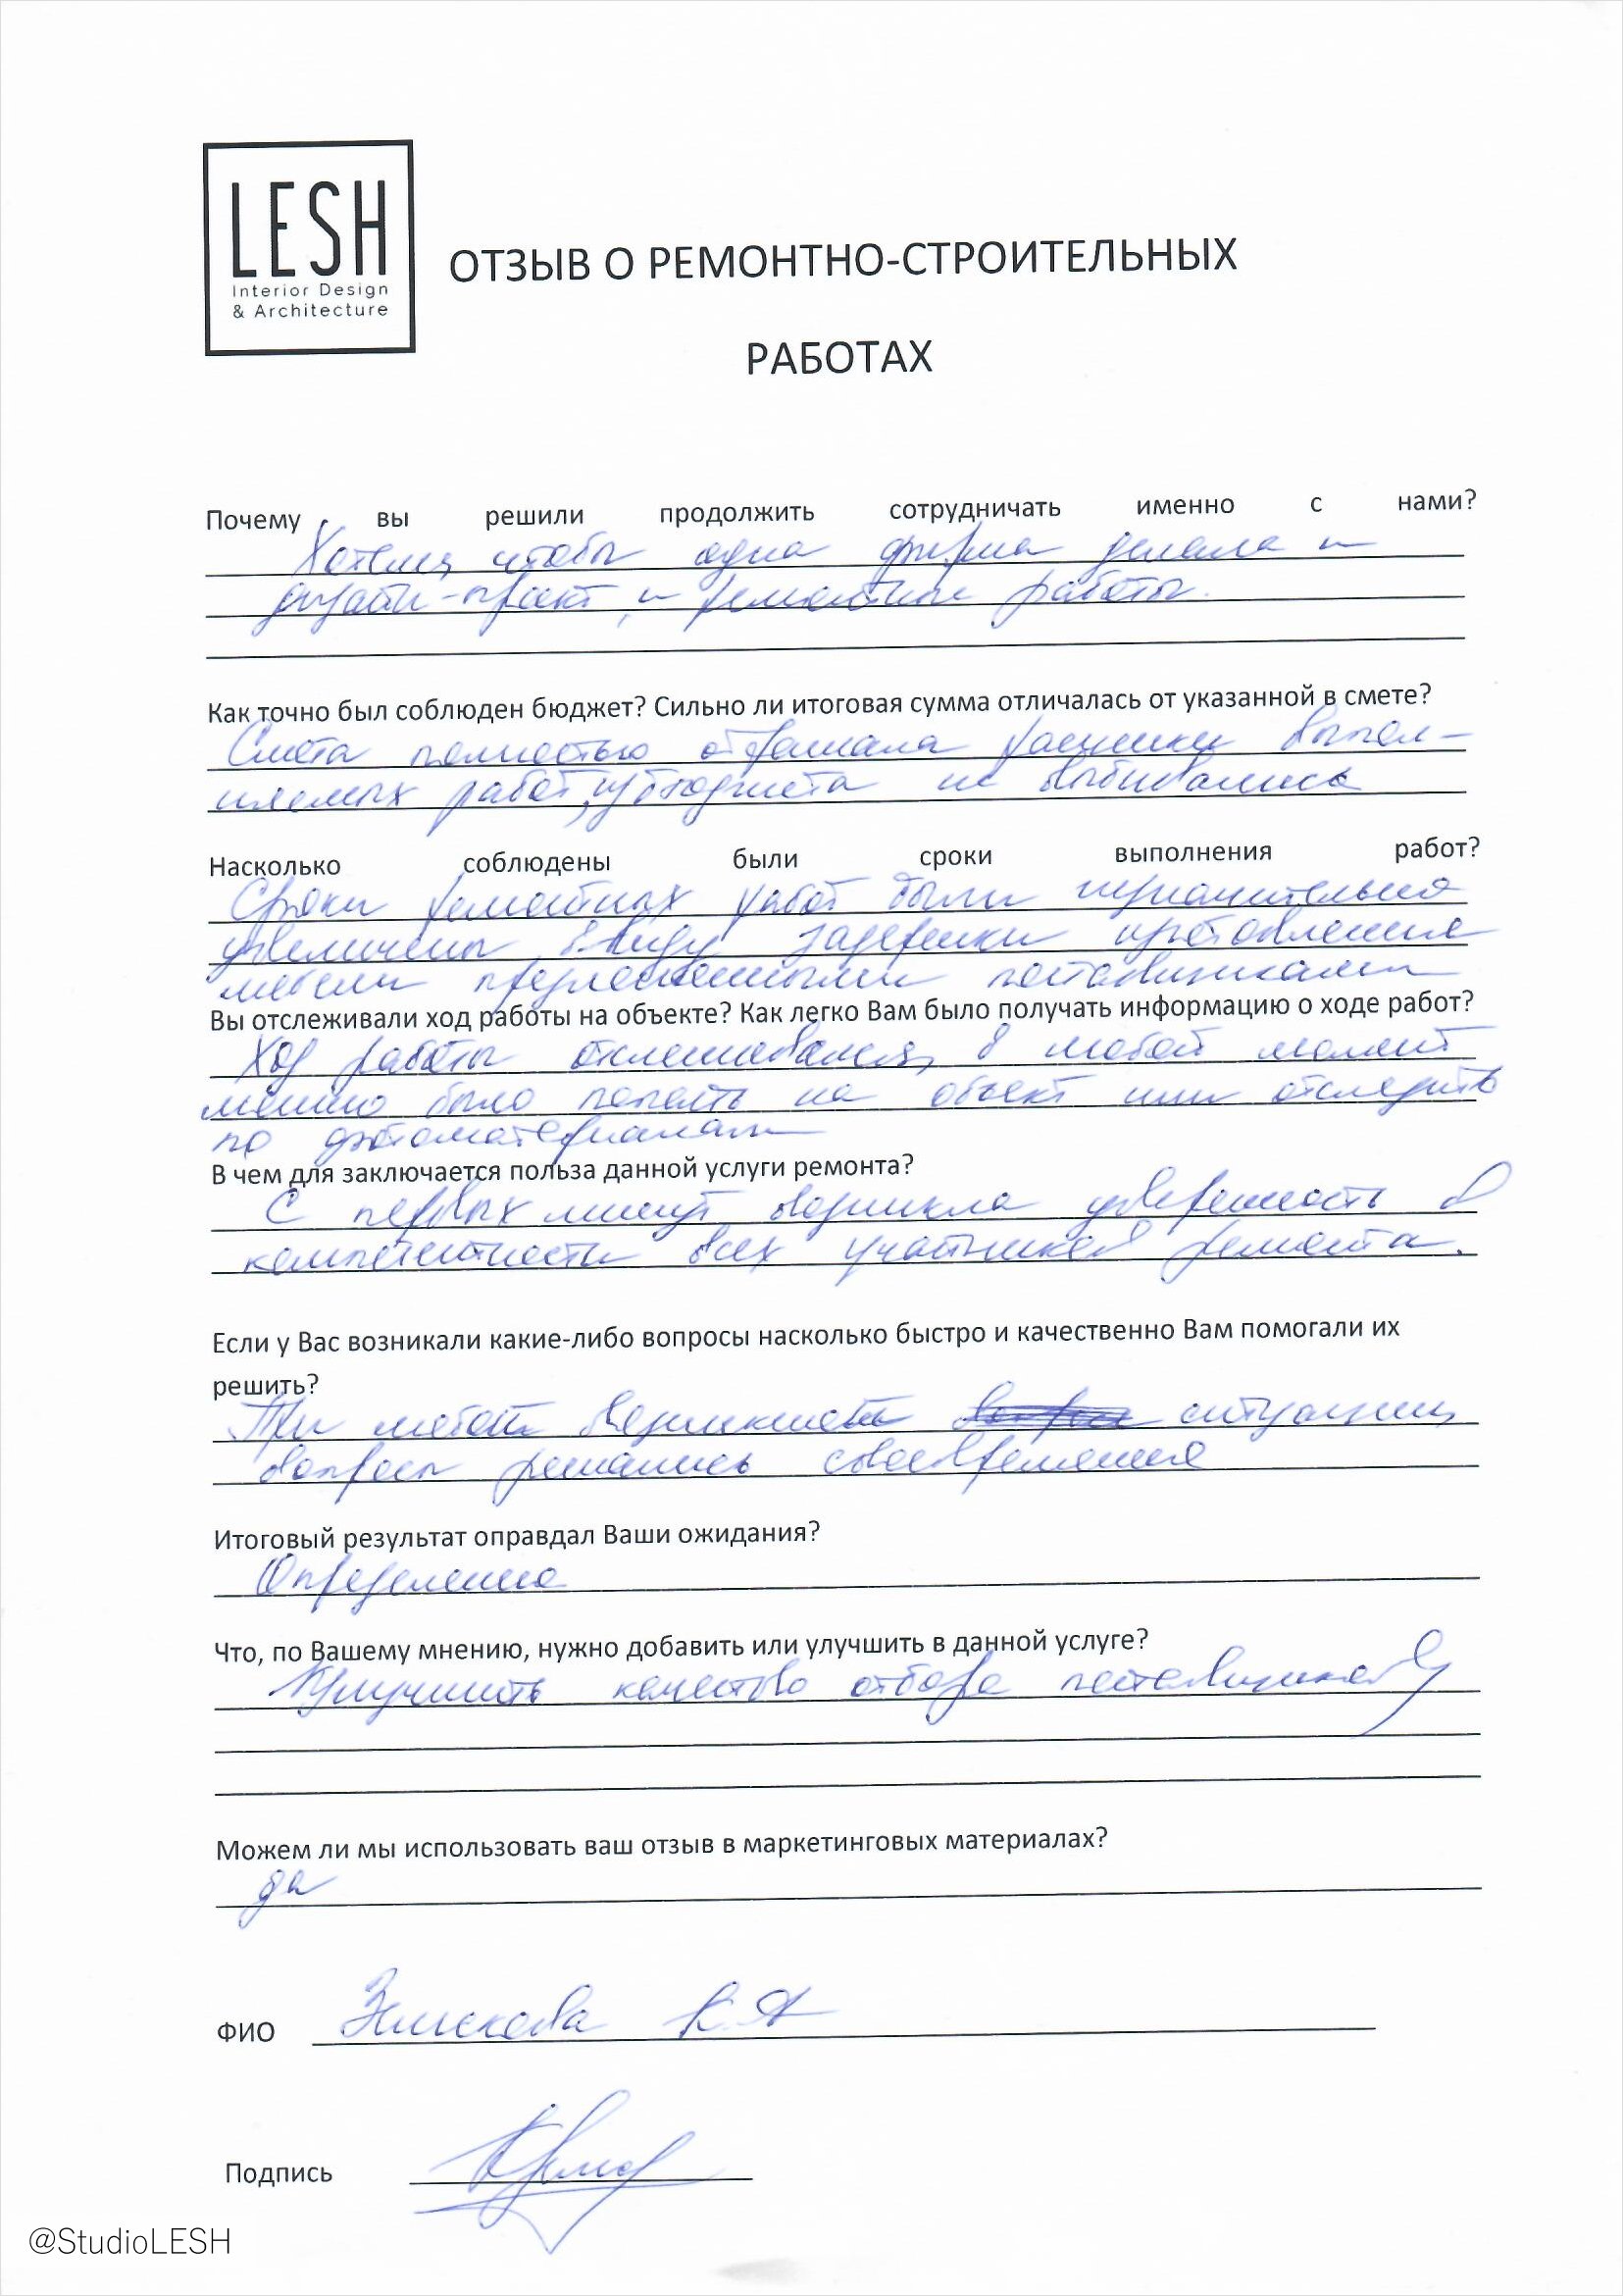 LESH
Interior Design
& Architecture
ОТЗЫВ О РЕМОНТНО-СТРОИТЕЛЬНЫХ
РАБОТАХ
Почему вы решили продолжить сотрудничать именно с нами?
Хотели, чтобы одна фирма делала и
дизайн-проект, и ремонтные работы.
Как точно был соблюден бюджет? Сильно ли итоговая сумма отличалась от указанной в смете?
Смета полностью отражала расценки выпол-
няемых работ, из бюджета не выбивались
Насколько соблюдены были сроки выполнения работ?
Сроки ремонтных работ были незначительно
увеличены ввиду задержки изготовления
мебели предложенными поставщиками
Вы отслеживали ход работы на объекте? Как легко Вам было получать информацию о ходе работ?
Ход работы отслеживался, в любой момент
можно было попасть на объект или отследить
по фотоматериалам
В чем для заключается польза данной услуги ремонта?
С первых минут возникла уверенность в
компетентности всех участников ремонта.
Если у Вас возникали какие-либо вопросы насколько быстро и качественно Вам помогали их
решить?
При любой возникшей ситуации,
вопросы решались своевременно
Итоговый результат оправдал Ваши ожидания?
Определенно
Что, по Вашему мнению, нужно добавить или улучшить в данной услуге?
Улучшить качество отбора поставщиков
Можем ли мы использовать ваш отзыв в маркетинговых материалах?
да
ФИО К.А
Подпись
@StudioLESH